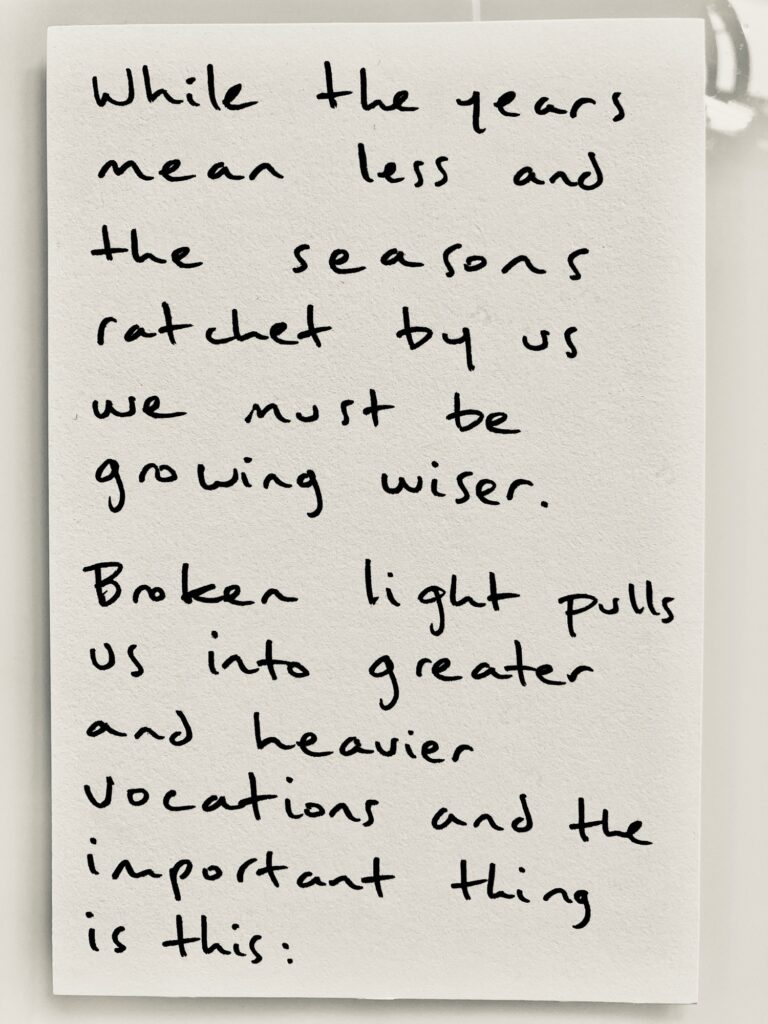 While the years
mean less and
the seasons
ratchet by us
we must be
growing wiser.
Broken light pulls
us into greater
and heavier
vocations and the
important thing
is this: